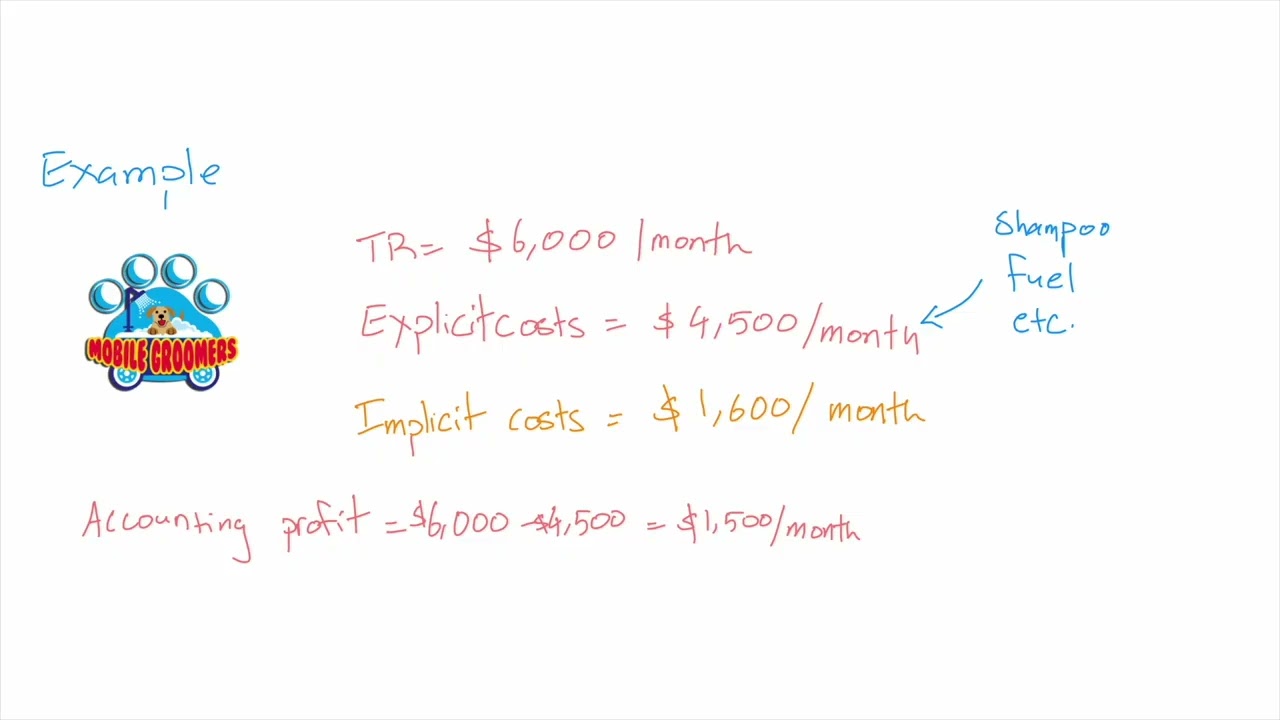 Example
TR= $6,000 /month
Shampoo
fuel
etc.
Explicit costs = $4,500/month
MOBILE GROOMERS
Implicit costs = $1,600/ month
Accounting profit = $6,000 - $4,500 = $1,500/month